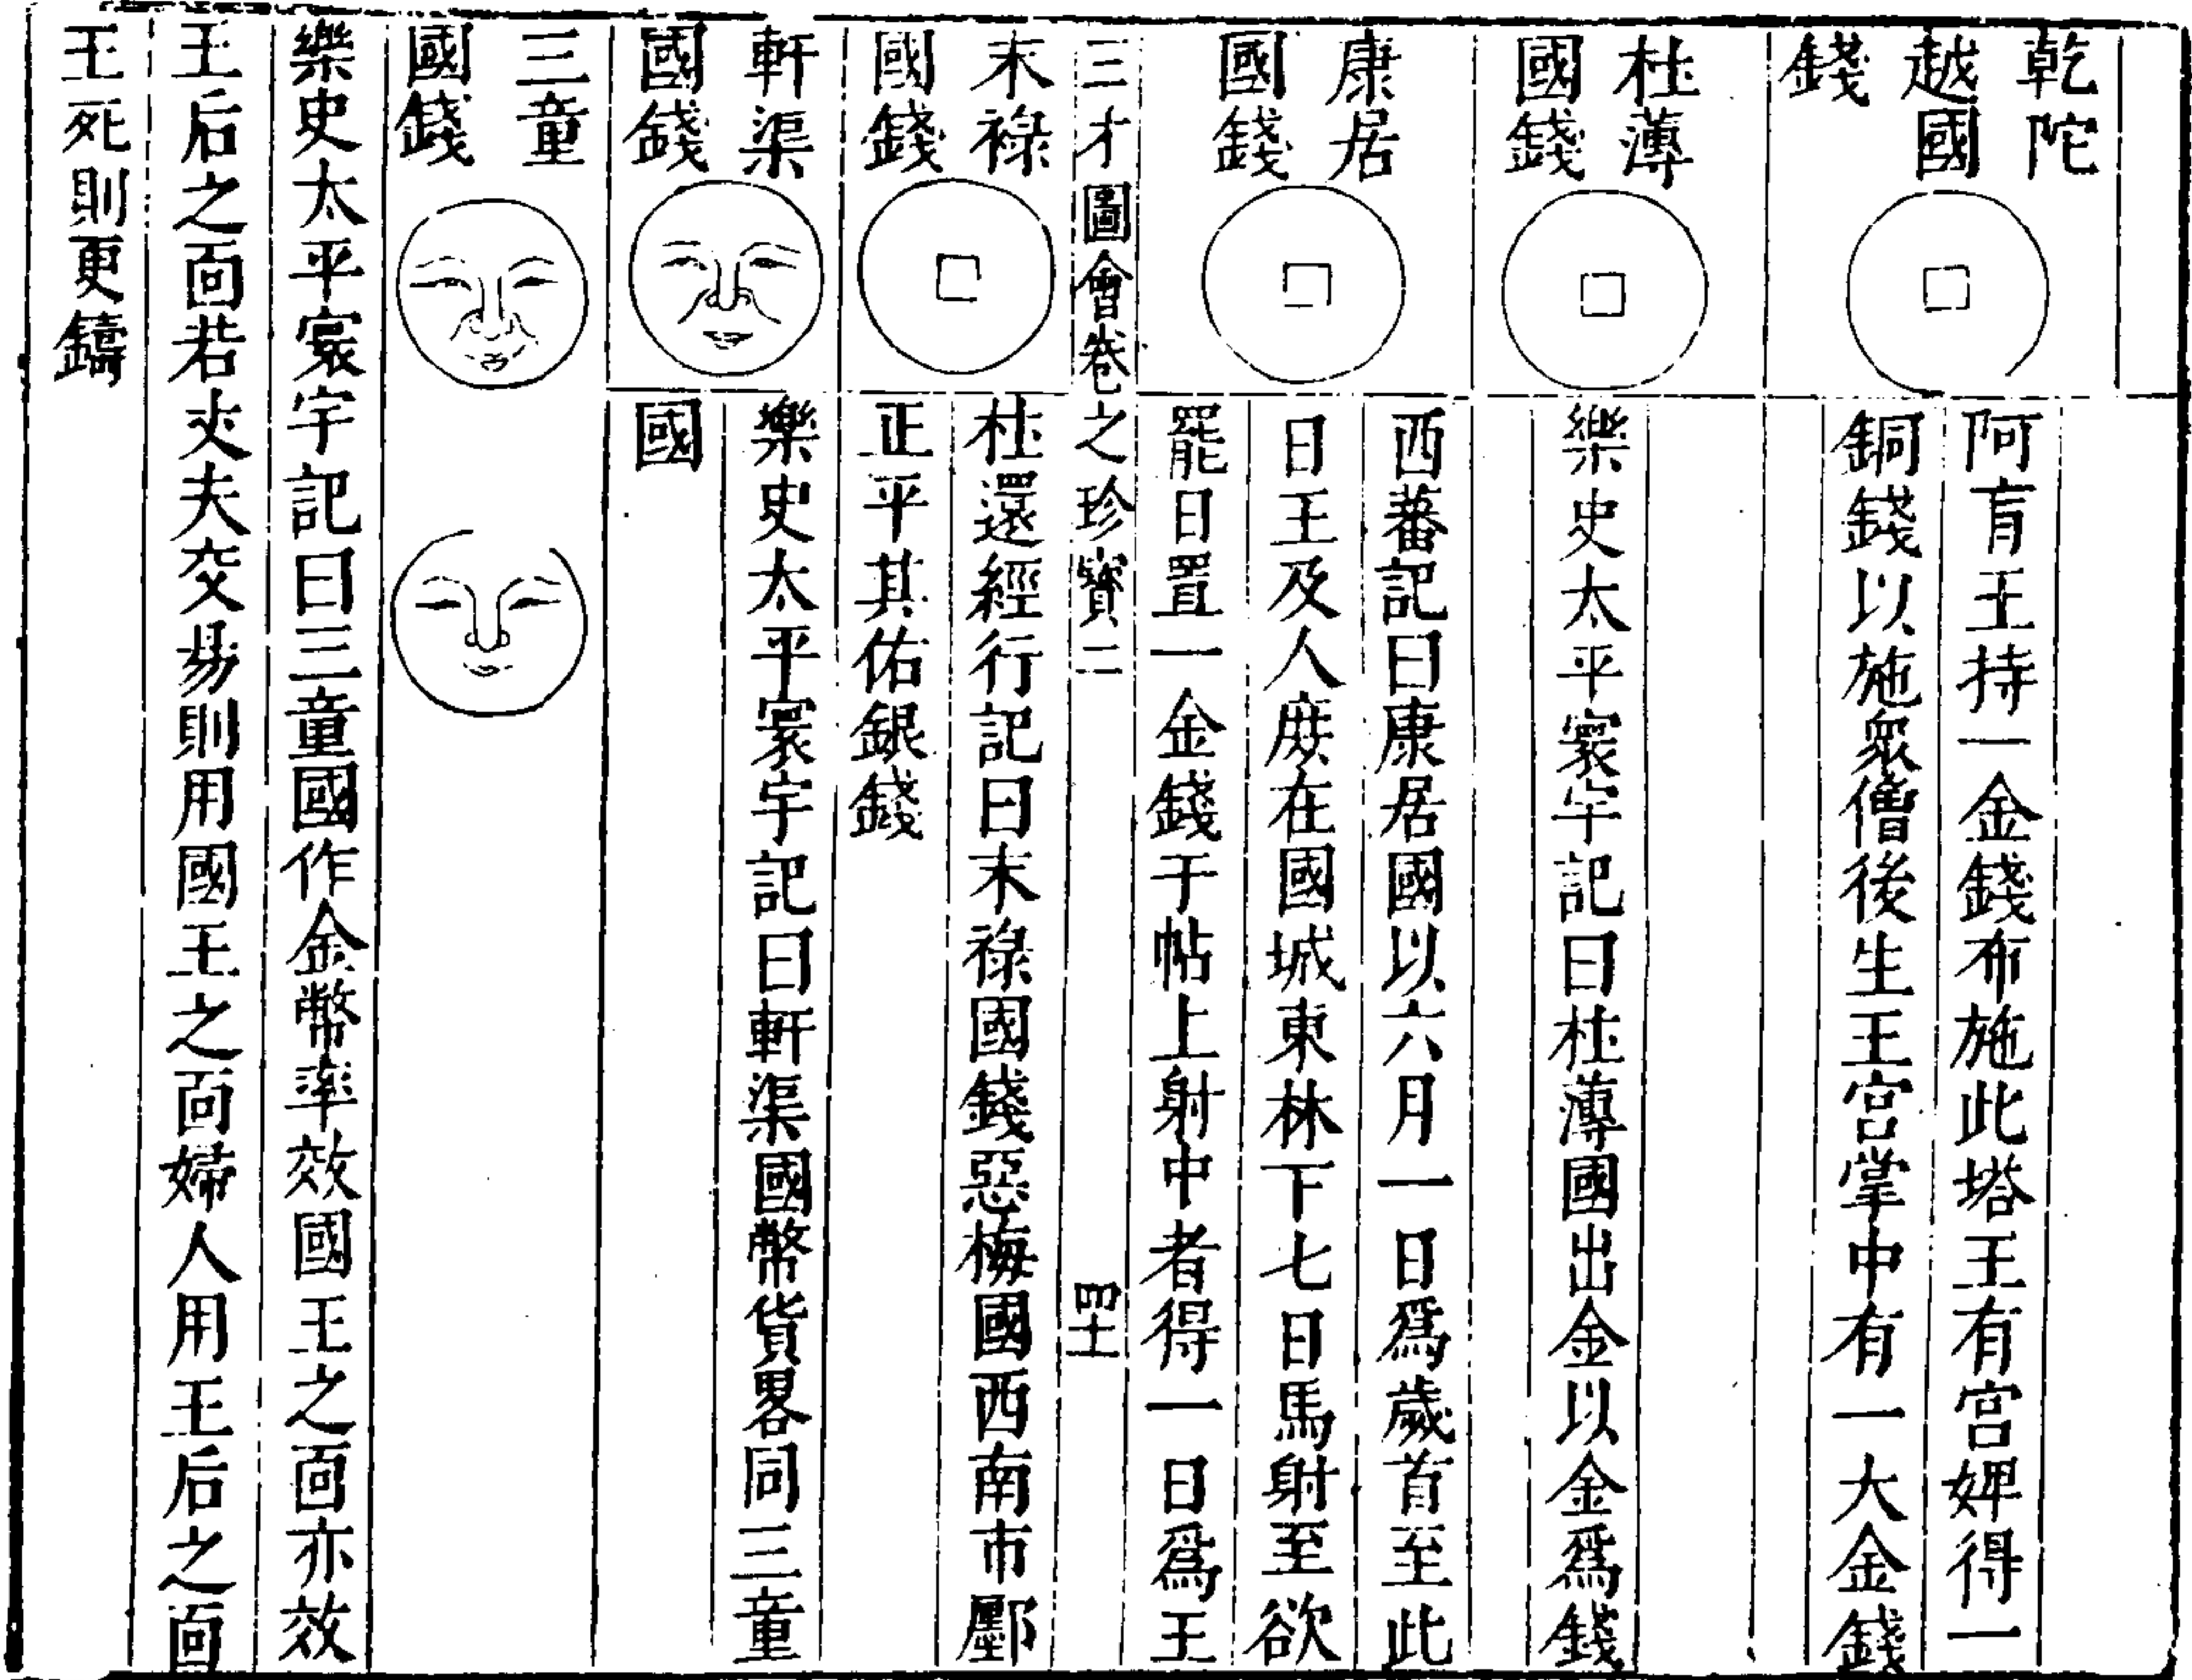 乾陀
越國
錢
阿育王持一金錢布施此塔王有宮婢得一
銅錢以施衆僧後生王宮掌中有一大金錢
杜薄
國錢
樂史太平寰宇記曰杜薄國出金以金爲錢
康居
國錢
西蕃記曰康居國以六月一日爲歲首至此
日王及人庶在國城東林下七日馬射至欲
罷日置一金錢于帖上射中者得一日爲王
三才圖會卷之珍寶二
四十
末祿
國錢
杜還經行記曰末祿國錢惡梅國西南市鄽
正平其佑銀錢
軒渠
國錢
樂史太平寰宇記曰軒渠國幣貨畧同三童
國
三童
國錢
樂史太平寰宇記曰三童國作金幣率效國王之面亦效
王后之面若丈夫交易則用國王之面婦人用王后之面
王死則更鑄